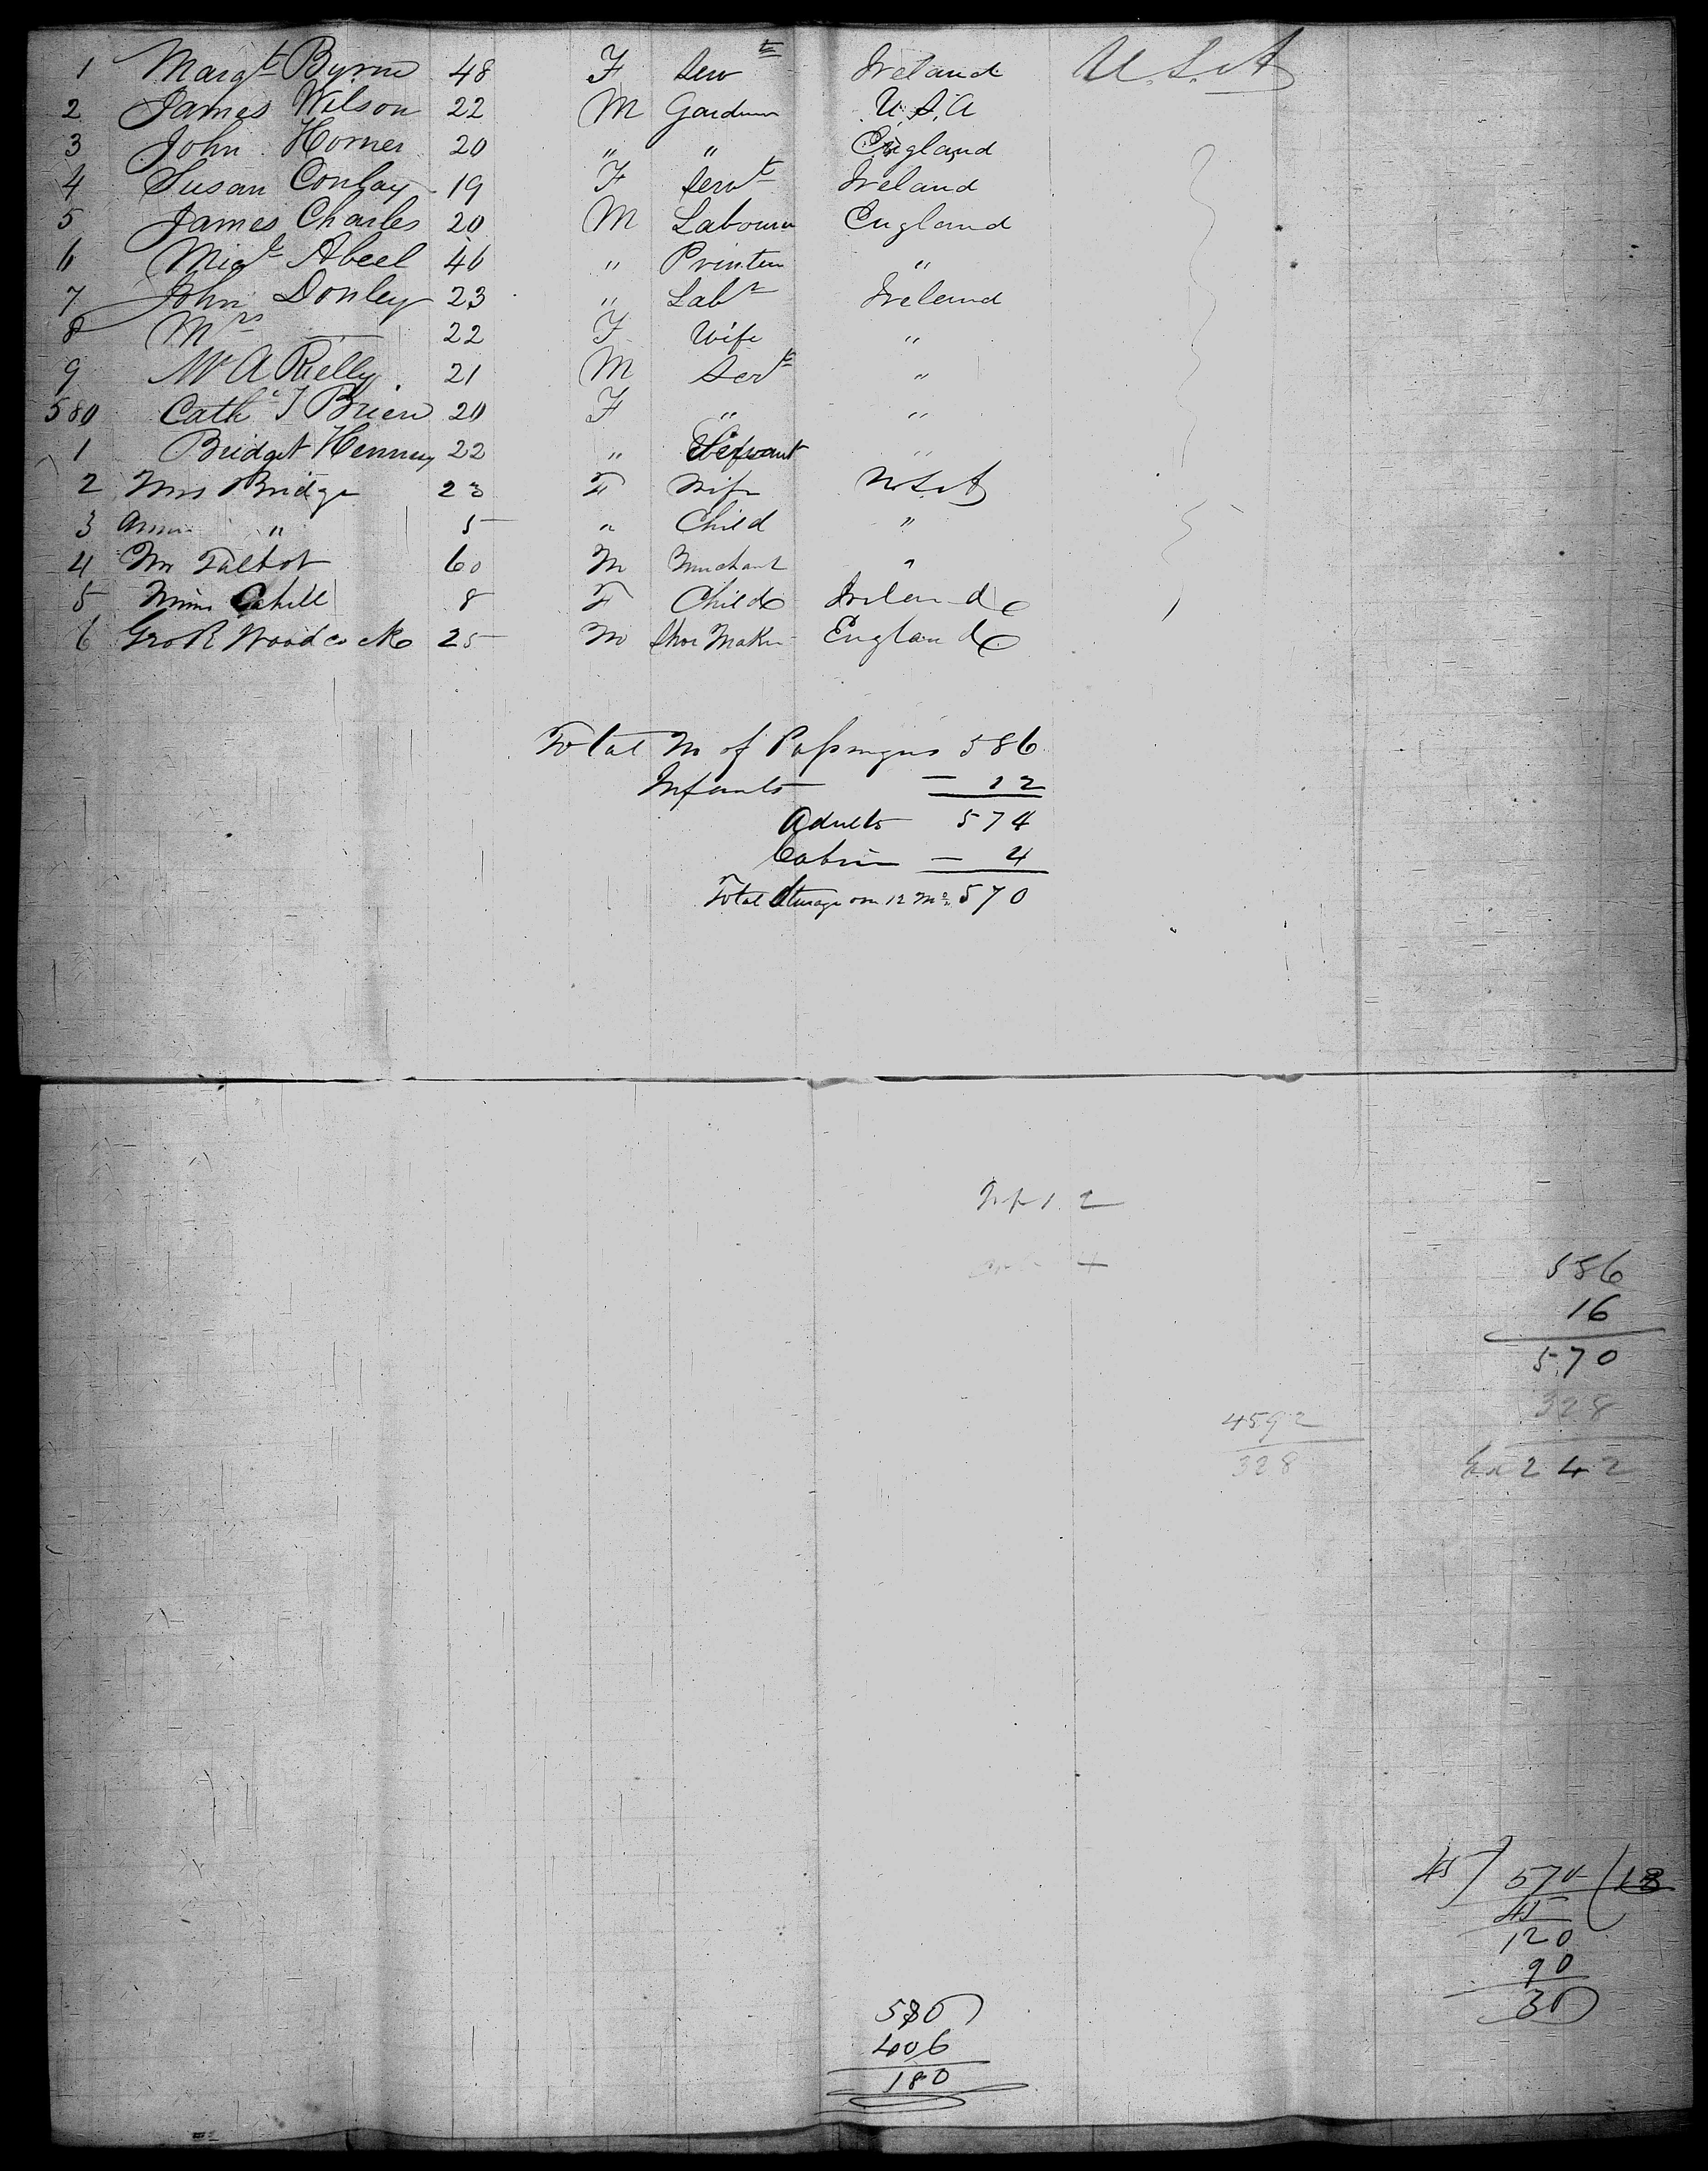 1 Margt Byrne 48 F Servt Ireland U.S.A
2 James Wilson 22 M Gardner U.S.A
3 John Horner 20 " " England
4 Susan Conlay 19 F Servt Ireland
5 James Charles 20 M Labourer England
6 Migl Abeel 46 " Printer "
7 John Donley 23 " Labr Ireland
8 Mrs — 22 F Wife "
9 Wm A Rielly 21 M Servt "
580 Cathe T Brien 20 F " "
1 Bridget Henney 22 " Servant "
2 Mrs Bridge 23 F Wife U.S.A
3 Annie " 5 " Child "
4 Mr Talbot 60 M Merchant "
5 Cahill 8 F Child Ireland
6 Geo R Woodcock 25 M Shoe Maker England
Total No of Passengers 586
Infants — 12
Adults 574
Cabin — 4
Total Sterage over 12 Mos 570
Inf 12
4
586
16
570
4592
328
328
242
45) 570 (12
45
120
90
30
580
406
180